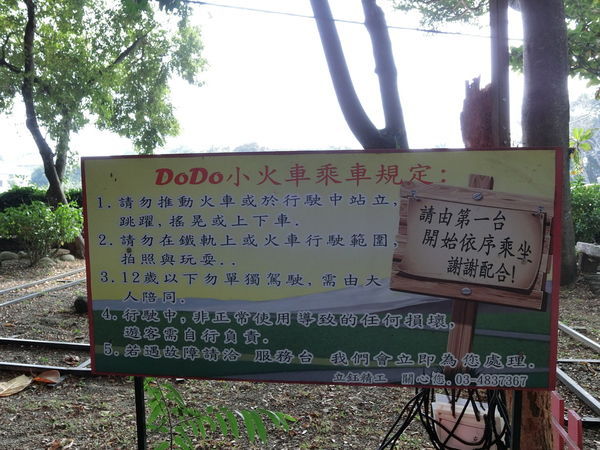 DoDo小火車乘車規定:
1. 請勿推動火車或於行駛中站立,
跳躍,搖晃或上下車.
2. 請勿在鐵軌上或火車行駛範圍,
拍照與玩耍..
3.12歲以下勿單獨駕駛,需由大
人陪同.
4. 行駛中,非正常使用導致的任何損壞,
遊客需自行負責.
5. 若遇故障請洽 服務台 我們會立即為您處理.
立鈺精工 關心您.03-4837367
請由第一台
開始依序乘坐
謝謝配合!